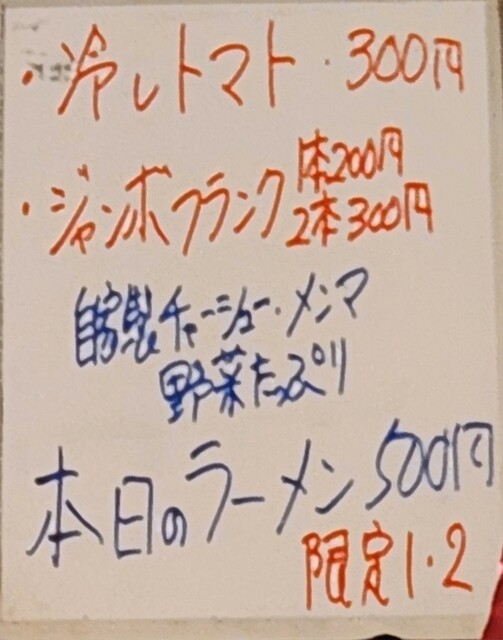 ・冷しトマト・300円
・ジャンボフランク 1本200円
2本300円
自家製チャーシュー・メンマ
野菜たっぷり
本日のラーメン500円
限定1・2